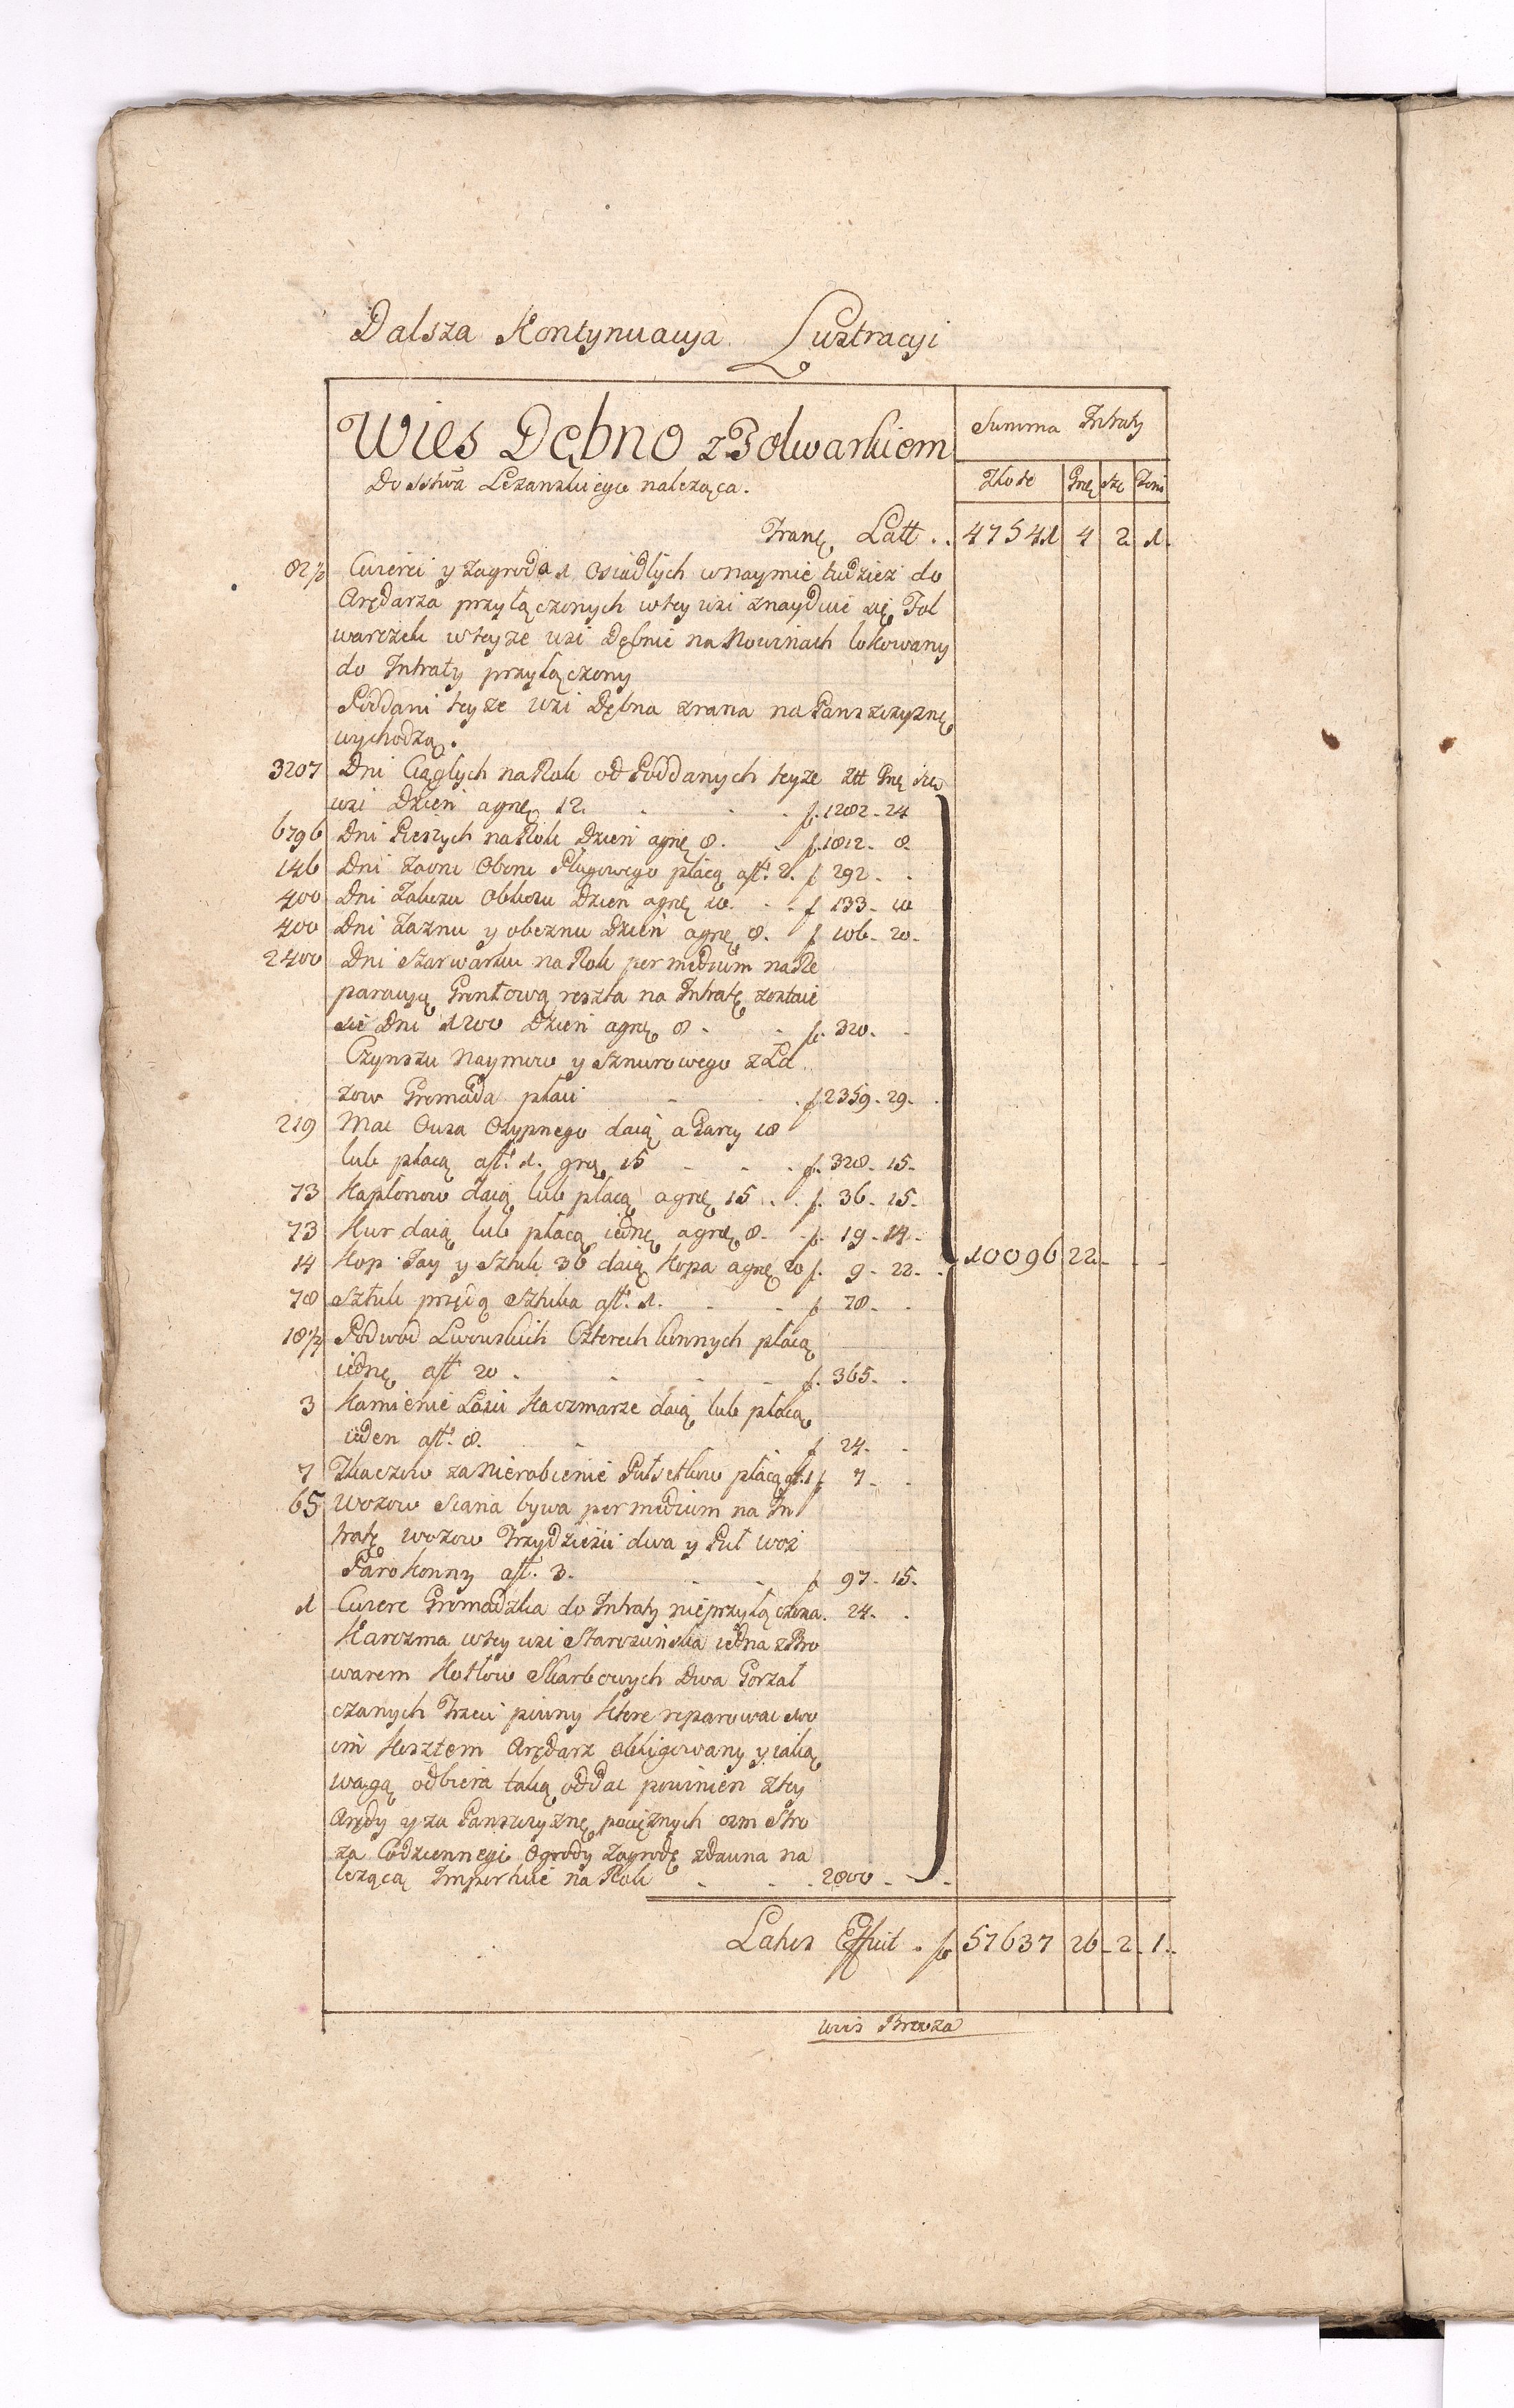 Dalsza Kontynuacya Lustracyi
Wies Dębno z Folwarkiem
Summa Intraty
Do Sstwa Lezanskiego naleząca.
Złote Grę Sze
Tranę Latt . . 47541 4 2 1.
82½ Cwierci y Zagroda 1 Osiadłych wnaymie tudziez do
Arędarza przyłączonych wtey wsi znayduie się Fol
warczek wteyze wsi Dębnie na Nowinach lokowany
do Intraty przyłączony
Poddani teyze wsi Dębna zrana na Panszczyznę
wychodzą.
3207 Dni Ciągłych na Rok od Poddanych teyze Ztt Grę Sze
wsi Dzien agrę 12. . . . f. 1282 - 24
6796 Dni Pieszych na Rok Dzien agrę 8. . f. 1812 - 8.
146 Dni Oboru Pługowego płacą aft. 2. f 292 - .
400 Dni Dzien agrę 10. . . f 133 - 10
400 Dni Zaznu y obeznu Dzien agrę 8. f 106 - 20 -
2400 Dni Szarwarku na Rok per medium na Re
paracyą Grontową reszta na Intratę zostaie
sie Dni 1200 Dzien agrę 8 - . f. 320. .
Czynszu Naymow y Sznurowego z Ła
zow Gromada płaci - . . f 2359 - 29 - .
219 Mac Owsa Osypnego daią a Garcy 18
lub płacą aft. 1. grą 15 - - . f. 328 - 15 -
73 Kapłonow daią lub płacą agrę 15 . . f. 36 - 15 -
73 Kur daią lub płacą iednę agrę 8 - . f. 19 - 14 -
14 Kop Jay y Sztuk 36 daią Kopa agrę 20 f. 9 - 22 - . 10096 22 - - -
78 Sztuk przędą Sztuka aft. 1. . . f 78 - .
18¼ Podwod Lwowskich Czterech konnych płacą
iednę aft 20 . - - - f. 365 - .
3 Kamienie Łoiu Kaczmarze daią lub płacą
ieden aft. 8. - f 24 - .
7 Tkaczow za Nierobienie Pułsetkow płacą aft. 1 f 7 - .
65 Wozow Siana bywa per medium na In
tratę wozow Trzydziesci dwa y Puł woz
Parokonny aft. 3 - - - f 97 - 15 -
1 Cwierc Gromadzka do Intraty nieprzyłączona . 24 - .
Karczma wtey wsi iedna z Bro
warem Kotłow Skarbowych Dwa Gorzał
czanych Trzeci piwny Ktore reparowac swo
im Kosztem Arędarz obligowany y iaką
wagą odbiera taką oddac powinien z tey
Arędy y za Panszczyznę pociężnych osm Stro
za Codziennego Ogrody Zagrodę zdawna na
lezącą Importuie na Rok - . . 2800 - - -
Latus Effuit . f 57637 26 - 2 - 1 -
wies Brzoza